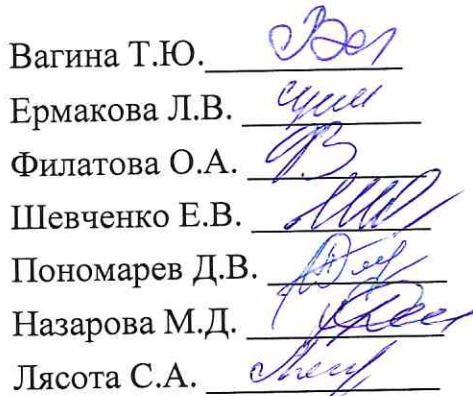 Вагина Т.Ю.
Ермакова Л.В.
Филатова О.А.
Шевченко Е.В.
Пономарев Д.В.
Назарова М.Д.
Лясота С.А.